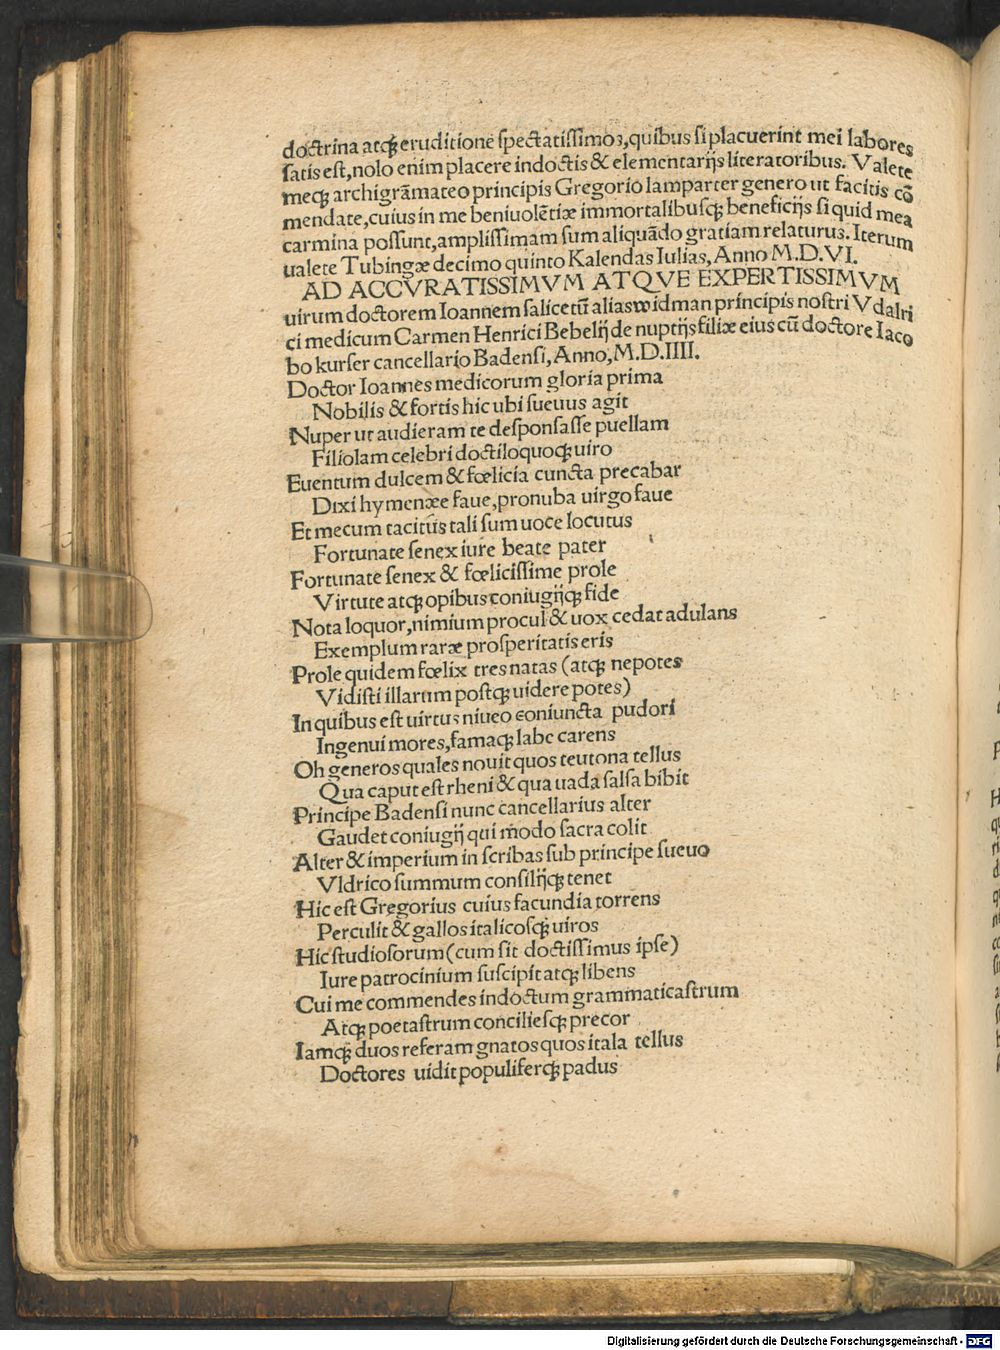 doctrina atqꝫ eruditione ſpectatiſſimoꝝ, quibus ſi placuerint mei labores
ſatis eſt, nolo enim placere indoctis & elementarijs literatoribus. Valete
meqꝫ archigrāmateo principis Gregorio lamparter genero ut facitis cō
mendate, cuius in me beniuolētiæ immortalibuſqꝫ beneficijs ſi quid mea
carmina poſſunt, ampliſſimam ſum aliquādo gratiam relaturus. Iterum
ualete Tubingæ decimo quinto Kalendas Iulias, Anno M.D.VI.
AD ACCVRATISSIMVM ATQVE EXPERTISSIMVM
uirum doctorem Ioannem ſalicetū alias widman principis noſtri Vdalri
ci medicum Carmen Henrici Bebelij de nuptijs filiæ eius cū doctore Iaco
bo kurſer cancellario Badenſi, Anno, M.D.IIII.
Doctor Ioannes medicorum gloria prima
Nobilis & fortis hic ubi ſueuus agit
Nuper ut audieram te deſponſaſſe puellam
Filiolam celebri doctiloquoqꝫ uiro
Euentum dulcem & fœlicia cuncta precabar
Dixi hymenæe faue, pronuba uirgo faue
Et mecum tacitus tali ſum uoce locutus
Fortunate ſenex iure beate pater
Fortunate ſenex & fœliciſſime prole
Virtute atqꝫ opibus coniugijqꝫ fide
Nota loquor, nimium procul & uox cedat adulans
Exemplum raræ proſperitatis eris
Prole quidem fœlix tres natas (atqꝫ nepotes
Vidiſti illarum poſtqꝫ uidere potes)
In quibus eſt uirtus niueo coniuncta pudori
Ingenui mores, famaqꝫ labe carens
Oh generos quales nouit quos teutona tellus
Qua caput eſt rheni & qua uada ſalſa bibit
Principe Badenſi nunc cancellarius alter
Gaudet coniugij qui modo ſacra colit
Alter & imperium in ſcribas ſub principe ſueuo
Vldrico ſummum conſilijqꝫ tenet
Hic eſt Gregorius cuius facundia torrens
Perculit & gallos italicoſqꝫ uiros
Hic ſtudioſorum (cum ſit doctiſſimus ipſe)
Iure patrocinium ſuſcipit atqꝫ libens
Cui me commendes indoctum grammaticaſtrum
Atqꝫ poetaſtrum concilieſqꝫ precor
Iamqꝫ duos referam gnatos quos itala tellus
Doctores uidit populiferqꝫ padus
Digitalisierung gefördert durch die Deutsche Forschungsgemeinschaft - DFG